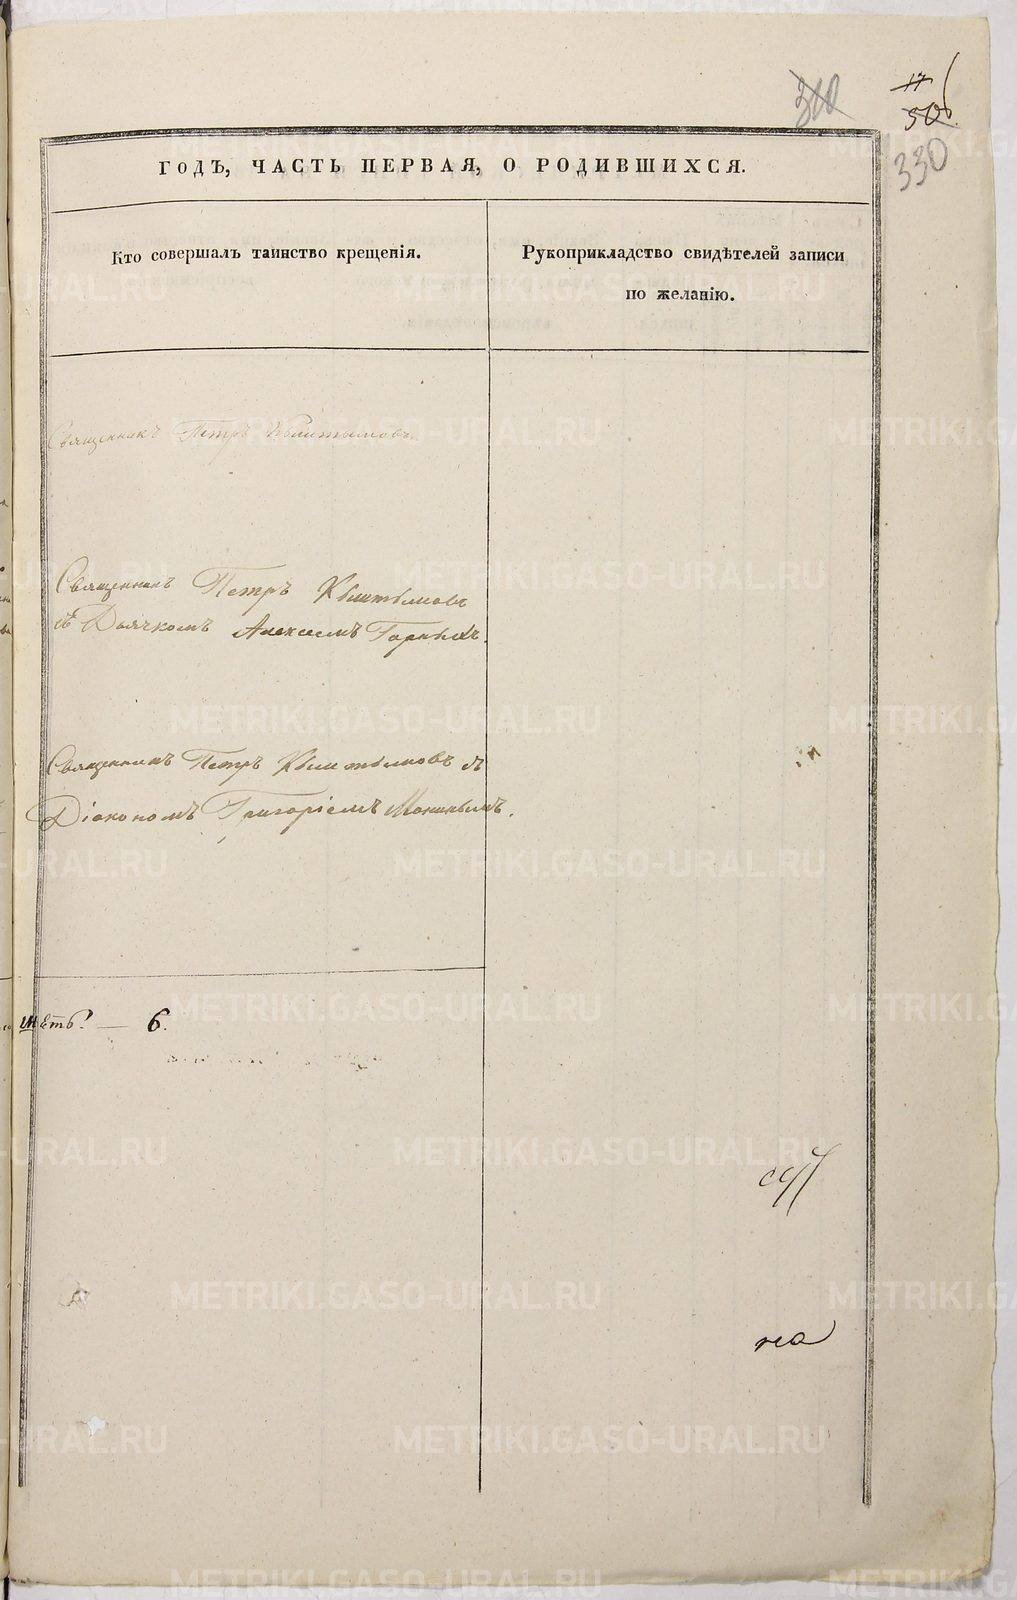 310
17
50
330
ГОДЪ, ЧАСТЬ ПЕРВАЯ, О РОДИВШИХСЯ.
Кто совершалъ таинство крещенія.
Рукоприкладство свидѣтелей записи
по желанію.
Священникъ Петръ Кыштымовъ.
Священникъ Петръ Кыштымовъ
съ Дьячкомъ Алексеемъ Горныхъ.
Священникъ Петръ Кыштымовъ съ
Діакономъ Григоріемъ Мокинымъ.
шесть. — 6.
на
METRIKI.GASO-URAL.RU